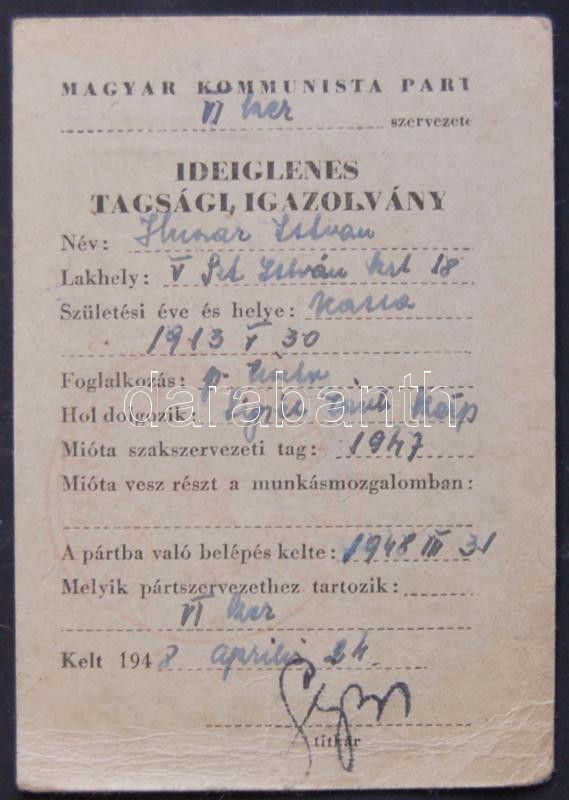 MAGYAR KOMMUNISTA PART
VI ker
szervezete
IDEIGLENES
TAGSÁGI IGAZOLVÁNY
Név: Huszár István
Lakhely: V Szt István krt 18
Születési éve és helye: Kassa
1913 V 30
Foglalkozás:
darabanth
Hol dolgozik:
Mióta szakszervezeti tag: 1947
Mióta vesz részt a munkásmozgalomban:
A pártba való belépés kelte: 1948 III 31
Melyik pártszervezethez tartozik:
VI ker
Kelt 1948 április 24.
titkár